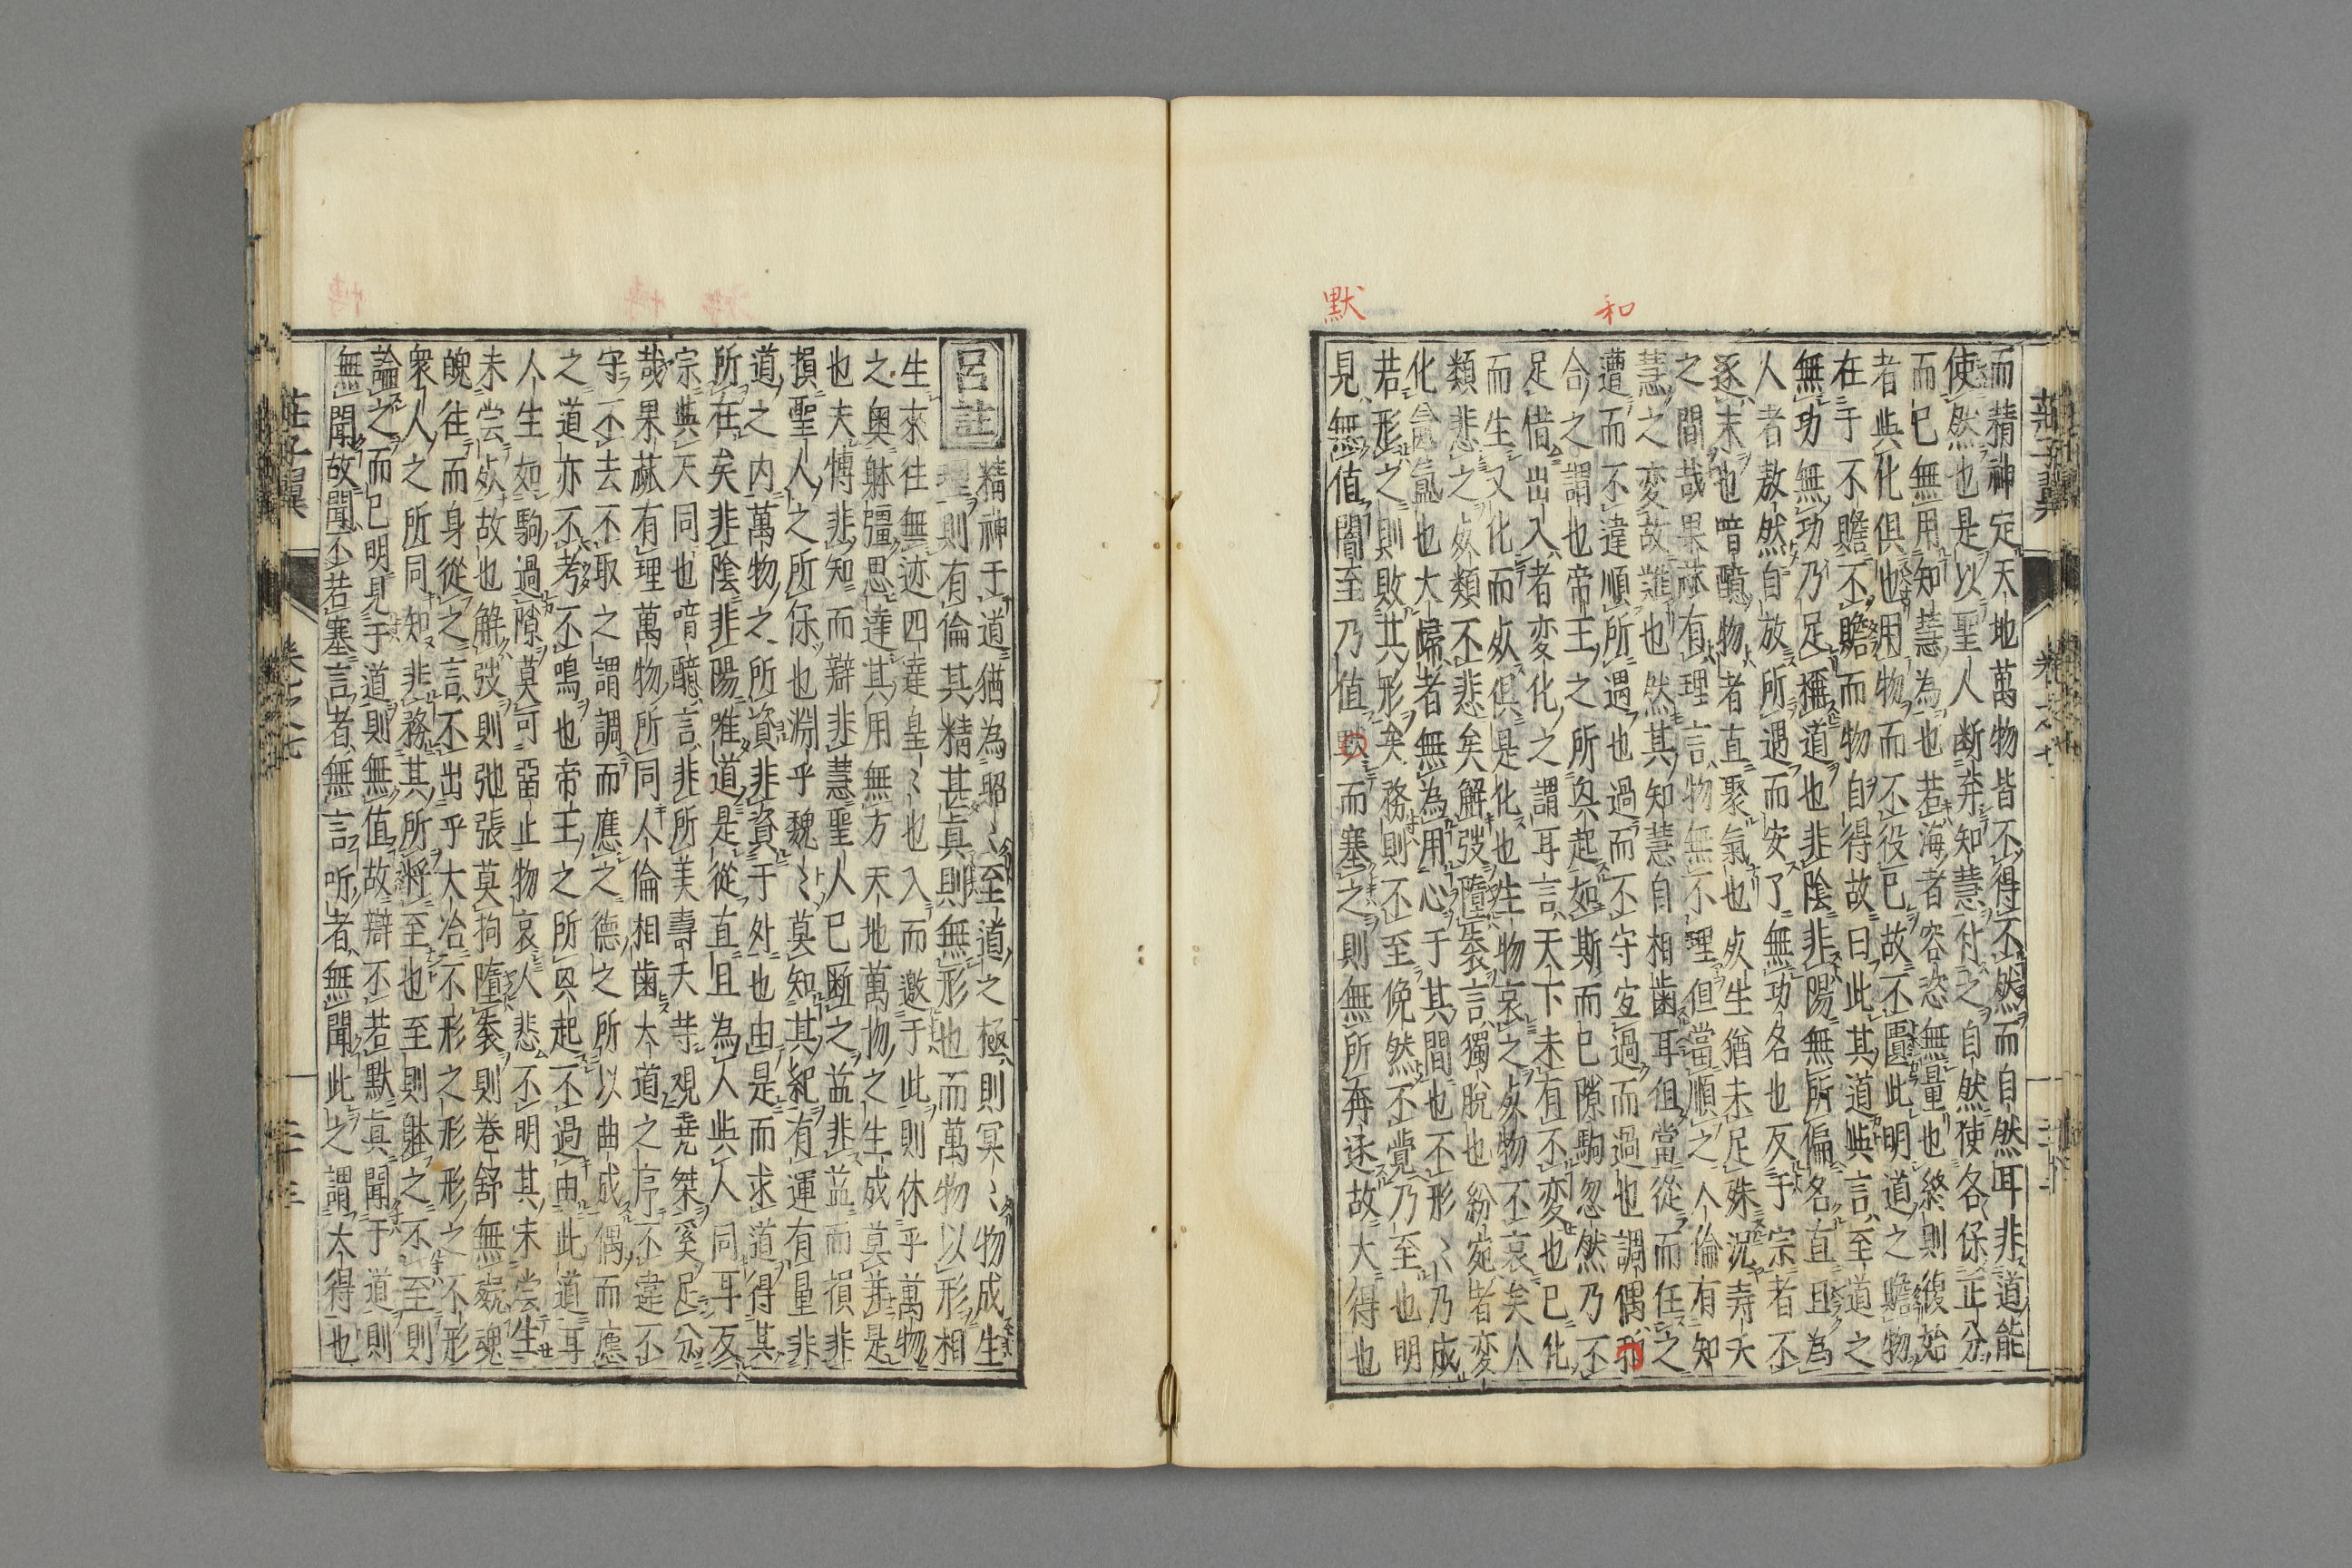 和
默
而精神定天地萬物皆不得不然而自然耳非道能
使然也是以聖人断弃知慧付之自然使各保正分
而已無用知慧為也若海者容恣無量也終則復始
者與化俱也用物而不役已故不匱此明道之贍物
在于不贍不贍而物自得故曰此其道與言至道之
無功無功乃足稱道也非陰非陽無所偏名直且為
人者敖然自放所遇而安了無功名也反于宗者不
逐末也喑醷物者直聚氣也㱕生猶未足殊況壽夭
之間哉果蓏有理言物無不理但當順之人倫有知
慧之変故難也然其知慧自相齒耳但當從而任之
遭而不違順所遇也過而不守宜過而過也調偶
合之謂也帝王之所與起如斯而已隙駒忽然乃不
足借出入者変化之謂耳言天下未有不変也已化
而生又化而死俱是化也生物哀之死物不哀矣人
類悲之死類不悲矣解弢墮袠言獨脫也紛宛者変
化氤氳也大歸者無為用心于其間也不形〻乃成
若形之則敗其形矣務則不至俛然不覺乃至也明
見無值闇至乃值而塞之則無所奔逐故大得也
莊子翼
呂註
精神于道猶為昭〻至道之極則冥〻物成生
理則有倫其精甚真則無形也而萬物以形相
生來往無迹四達皇〻也入而邀于此則休乎萬物
之奥躰彊思達其用無方天地萬物之生成莫非是
也夫博非知而辯非慧聖人已斷之益非益而損非
損聖人之所保也淵乎魏〻莫知其紀有運有量非
道之内萬物之所資非資于外也由是而求道得其
所在矣非陰非陽唯道是從直且為人與人同耳反
宗與天同也喑醷言非所美壽夭等視堯桀奚足分
哉果蓏有理萬物所同人倫相齒大道之序不違不
守不去不取之謂調而應之德之所以曲成偶而應
之道亦不考不鳴也帝王之所與起不過由此道耳
人生如駒過隙莫可畱止物哀人悲不明其未嘗生
未嘗死故也解弢則弛張莫拘墮袠則卷舒無碍魂
魄往而身從之言不出乎大冶不形之形形之不形
衆人之所同知非務其所將至也至則躰之不至則
論之而已明見于道則無值故辯不若默真聞于道則
無聞故聞不若塞言者無言听者無聞此之謂大得也
莊子翼